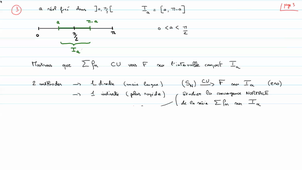 page 3
③ a est fixé dans ]0, π/2[ I_a = [a, π-a]
a π-a
0 π/2 π 0 < a < π/2
I_a
Montrons que ∑ fn CU vers F sur l'intervalle compact I_a
2 méthodes → 1 directe (mais longue) (S_N) CU→ F sur I_a (exo)
→ 1 indirecte (plus rapide) Etudier la convergence NORMALE
de la série ∑ fn sur I_a